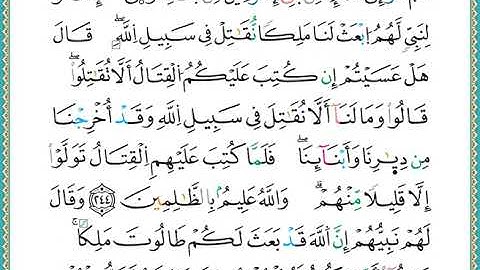 لِنَبِىٍّ لَّهُمُ ٱبۡعَثۡ لَنَا مَلِكًا نُّقَٰتِلۡ فِى سَبِيلِ ٱللَّهِۖ قَالَ
هَلۡ عَسَيۡتُمۡ إِن كُتِبَ عَلَيۡكُمُ ٱلۡقِتَالُ أَلَّا تُقَٰتِلُواْۖ
قَالُواْ وَمَا لَنَآ أَلَّا نُقَٰتِلَ فِى سَبِيلِ ٱللَّهِ وَقَدۡ أُخۡرِجۡنَا
مِن دِيَٰرِنَا وَأَبۡنَآئِنَاۖ فَلَمَّا كُتِبَ عَلَيۡهِمُ ٱلۡقِتَالُ تَوَلَّوۡاْ
إِلَّا قَلِيلًا مِّنۡهُمۡۚ وَٱللَّهُ عَلِيمُۢ بِٱلظَّٰلِمِينَ ٢٤٤ وَقَالَ
لَهُمۡ نَبِيُّهُمۡ إِنَّ ٱللَّهَ قَدۡ بَعَثَ لَكُمۡ طَالُوتَ مَلِكًاۚ